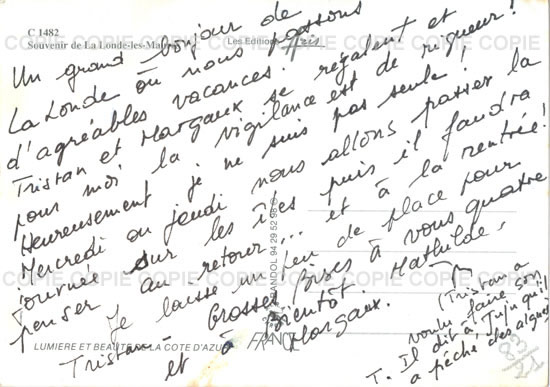 C 1482
Souvenir de La Londe-les-Mau
Les Editions Aris
Un grand bonjour de
La Londe où nous passons
d'agréables vacances.
Tristan et Margaux se régalent et
pour moi la vigilance est de rigueur!
Heureusement je ne suis pas seule!
Mercredi ou jeudi nous allons passer la
journée sur les îles puis il faudra
penser au retour... et à la rentrée!
Je laisse un peu de place pour
Tristan - Grosses Bises à vous quatre
et à bientôt. Mathilde,
Margaux.
(Tristan a
voulu faire son
T. Il dit à Juju qu'il
a pêché des algues!)
BANDOL 94 29 52 98
LUMIERE ET BEAUTE DE LA COTE D'AZUR
FRANCE
COPIE COPIE COPIE COPIE COPIE COPIE COPIE